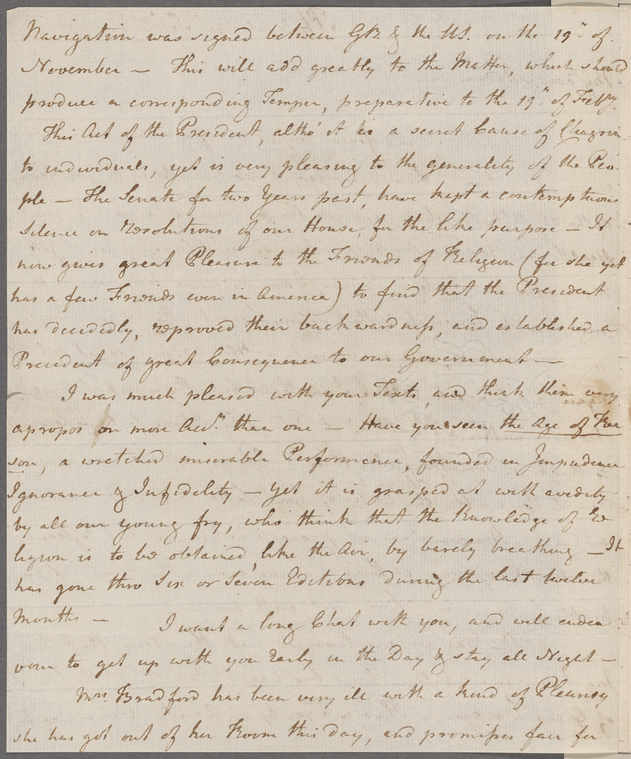 Navigation was signed between GB & the US. on the 19th of
November — This will add greatly to the Matter, which should
produce a corresponding Temper, preparative to the 19th of Feby.
This Act of the President, altho' it is a secret Cause of Chagrin
to individuals, yet is very pleasing to the generality of the Peo-
ple — The Senate for two Years past, have kept a contemptuous
silence on Resolutions of our House, for the like purpose — It
now gives great Pleasure to the Friends of Religion (for she yet
has a few Friends even in America) to find that the President
has decidedly, reproved their backwardness, and established a
Precedent of great Consequence to our Government —
I was much pleased with your Texts, and think them very
apropos on more Accts. than one — Have you seen the Age of Rea
son, a wretched miserable Performance, founded in Impudence
Ignorance & Infidelity — Yet it is grasped at with avidity
by all our young fry, who think that the Knowledge of Re
ligion is to be obtained, like the Air, by barely breathing — It
has gone thro Six or Seven Editions during the last twelve
Months — I want a long Chat with you, and will endea
vour to get up with you Early in the Day & stay all Night —
Mrs Bradford has been very ill with a kind of Pleurisy
she has got out of her Room this day, and promises fair for